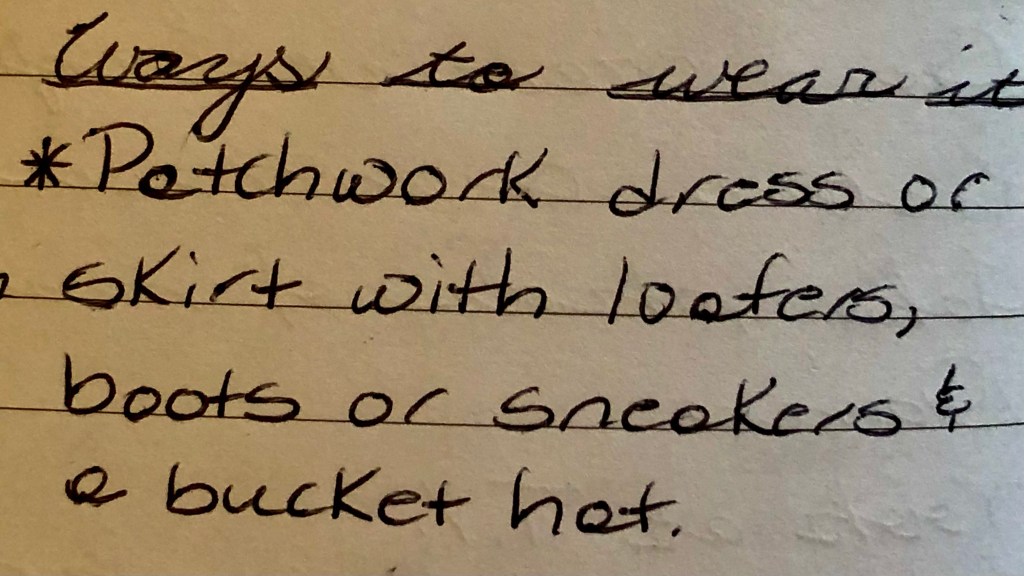 Ways to wear it
*Patchwork dress or
skirt with loafers,
boots or sneakers &
a bucket hat.